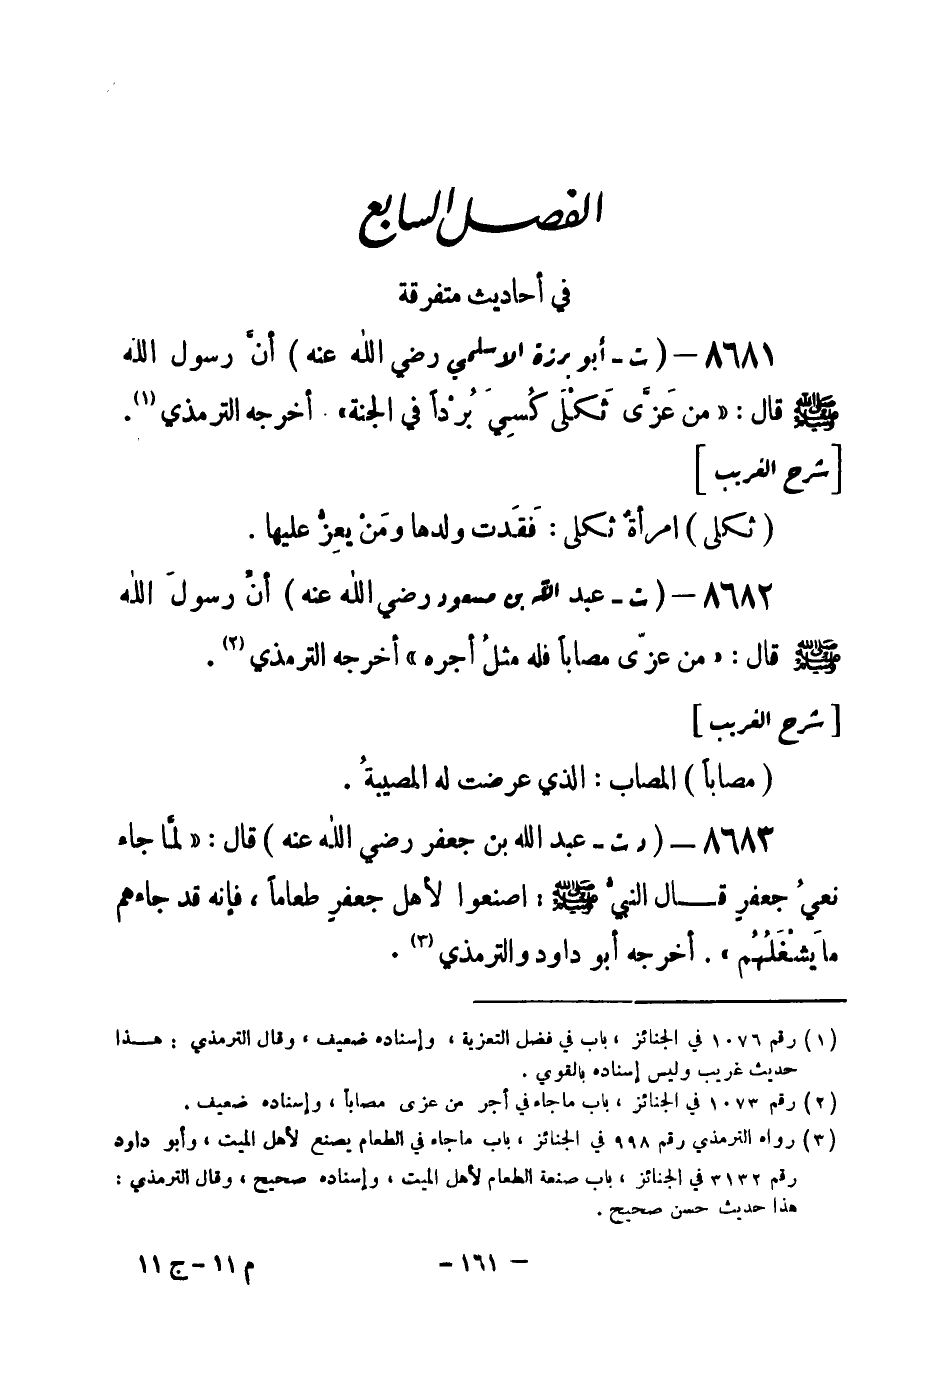 الفصل السابع
في أحاديث متفرقة
٨٦٨١ — ( ت - أبو برزة الاسلمي رضي الله عنه ) أنَّ رسول الله
ﷺ قال : « من عَزَّى ثَكْلَى كُسِيَ بُرْداً في الجنة» . أخرجه الترمذي (١).
[ شرح الغريب ]
( ثكلى ) امرأةٌ ثكلى : فَقَدت ولدها ومَنْ يعِزُّ عليها .
٨٦٨٢ — ( ت - عبد الله بن مسعود رضي الله عنه ) أنَّ رسولَ الله
ﷺ قال : « من عزّى مصاباً فله مثلُ أجره » أخرجه الترمذي (٢) .
[ شرح الغريب ]
( مصاباً ) المصاب : الذي عرضت له المصيبةُ .
٨٦٨٣ — ( د ت - عبد الله بن جعفر رضي الله عنه ) قال : « لمَّا جاء
نعيُ جعفرٍ قال النبيُّ ﷺ : اصنعوا لأهل جعفرٍ طعاماً ، فإنه قد جاءهم
ما يَشْغَلُهُم » . أخرجه أبو داود والترمذي (٣) .
(١) رقم ١٠٧٦ في الجنائز ، باب في فضل التعزية ، وإسناده ضعيف ، وقال الترمذي : هذا
حديث غريب وليس إسناده بالقوي .
(٢) رقم ١٠٧٣ في الجنائز ، باب ماجاء في أجر من عزى مصاباً ، وإسناده ضعيف .
(٣) رواه الترمذي رقم ٩٩٨ في الجنائز ، باب ماجاء في الطعام يصنع لأهل الميت ، وأبو داود
رقم ٣١٣٢ في الجنائز ، باب صنعة الطعام لأهل الميت ، وإسناده صحيح ، وقال الترمذي :
هذا حديث حسن صحيح .
— ١٦١ -
م ١١ - ج ١١